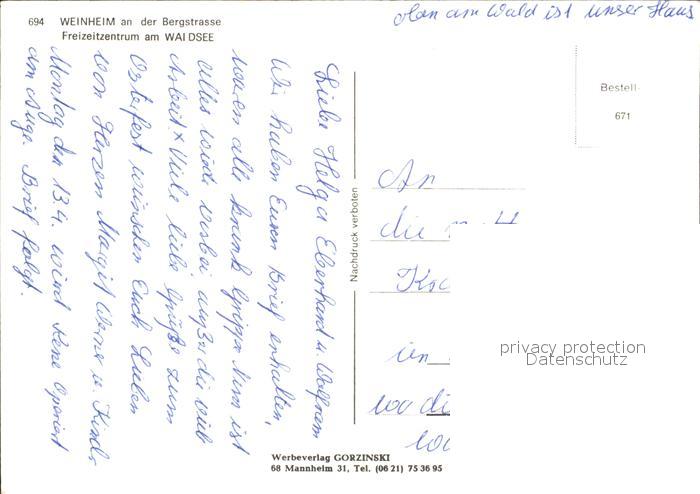 694 WEINHEIM an der Bergstrasse
Freizeitzentrum am WAIDSEE
oben am Wald ist unser Haus
Liebe Helga Eberhard u. Wolfram
Wir haben Euren Brief erhalten,
waren alle krank Grippe Nun ist
alles wieder vorbei außer die viele
Arbeit Viele liebe Grüße zum
Osterfest wünschen Euch Lieben
von Herzen Margit Werner u. Kinder
Montag den 13.4. wird Rene operiert
am Auge. Brief folgt.
Nachdruck verboten
Bestell-
671
An
die
in
privacy protection
Datenschutz
Werbeverlag GORZINSKI
68 Mannheim 31, Tel. (06 21) 75 36 95